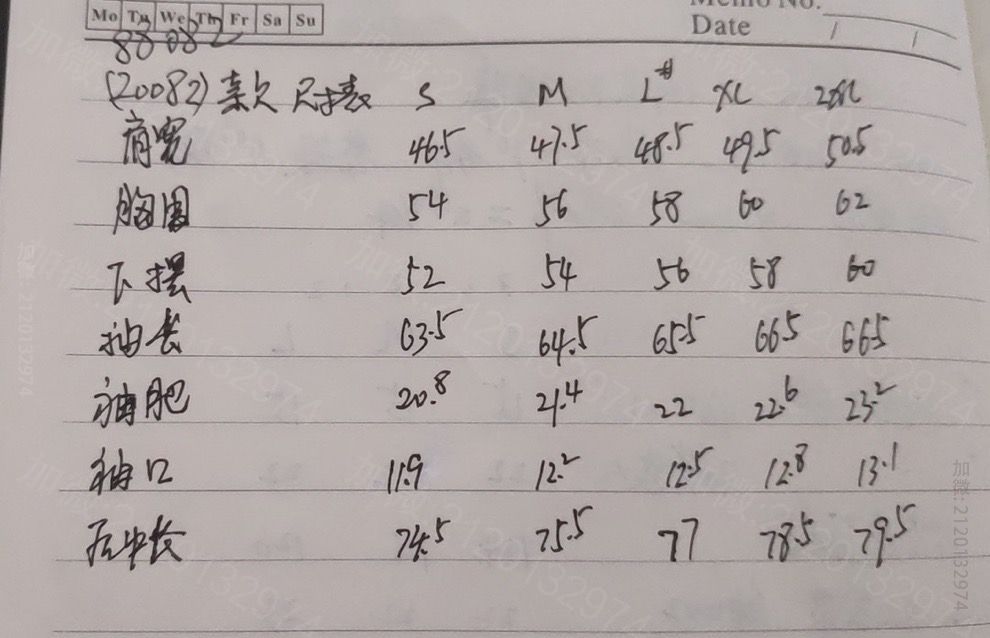 Mo Tu We Th Fr Sa Su
Memo No.
Date / /
88082
(20082)款 尺寸表 S M L# XL 2XL
肩宽 46.5 47.5 48.5 49.5 50.5
胸围 54 56 58 60 62
下摆 52 54 56 58 60
袖长 63.5 64.5 65.5 66.5 66.5
袖肥 20.8 21.4 22 22.6 23.2
袖口 11.9 12.2 12.5 12.8 13.1
后中长 74.5 75.5 77 78.5 79.5
加微:2120132974